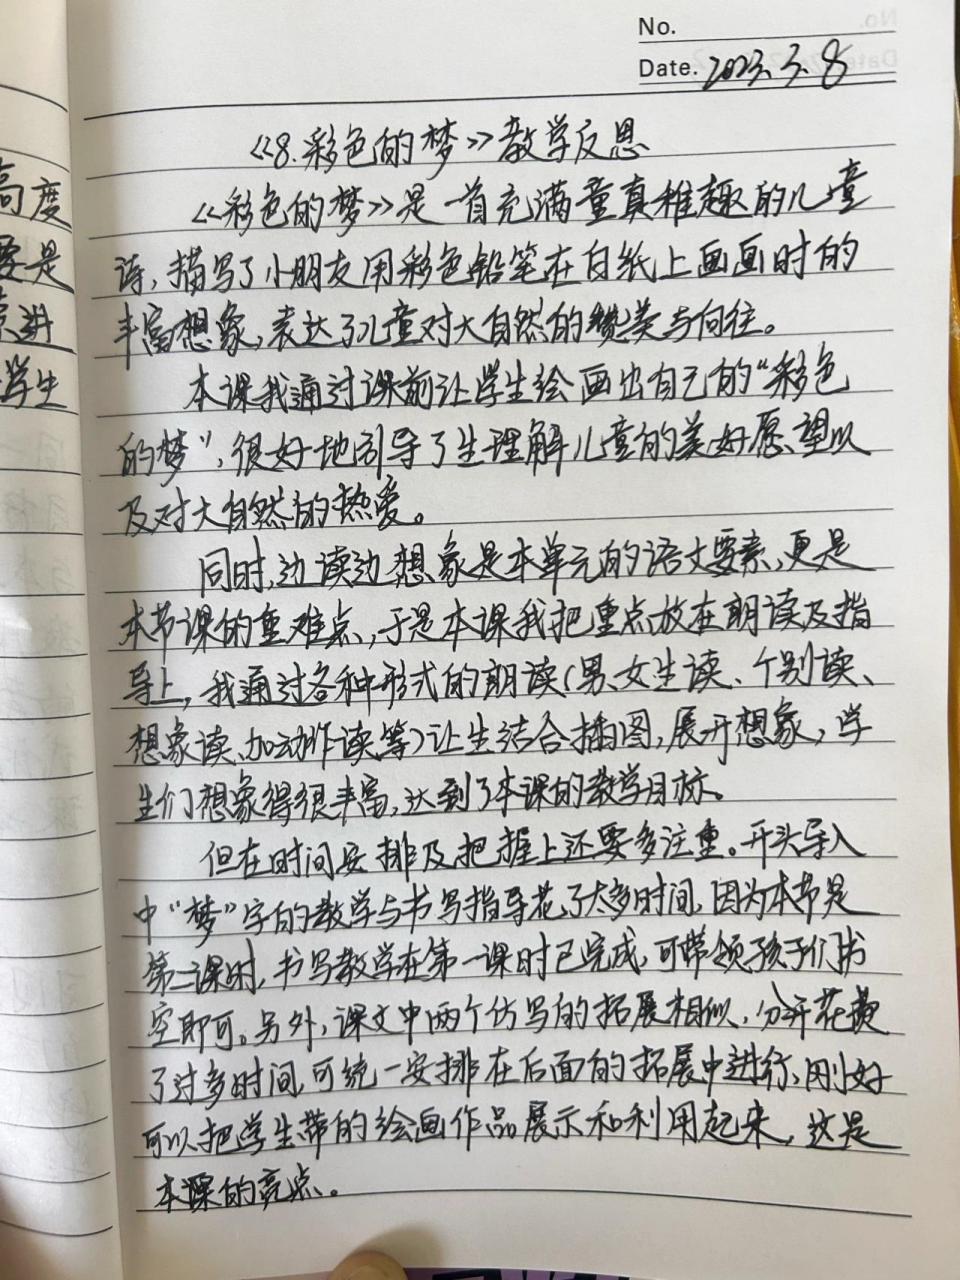 No.
Date. 2023.3.8
《8.彩色的梦》教学反思
《彩色的梦》是一首充满童真稚趣的儿童
诗，描写了小朋友用彩色铅笔在白纸上画画时的
丰富想象，表达了儿童对大自然的赞美与向往。
本课我通过课前让学生绘画出自己的“彩色
的梦”，很好地引导了生理解儿童的美好愿望以
及对大自然的热爱。
同时，边读边想象是本单元的语文要素，更是
本节课的重难点，于是本课我把重点放在朗读及指
导上，我通过各种形式的朗读（男、女生读、个别读、
想象读、加动作读等）让生结合插图，展开想象，学
生们想象得很丰富，达到了本课的教学目标。
但在时间安排及把握上还要多注重。开头导入
中“梦”字的教学与书写指导花了太多时间，因为本节是
第二课时，书写教学在第一课时已完成，可带领孩子们书
空即可。另外，课文中两个仿写的拓展相似，分开花费
了过多时间，可统一安排在后面的拓展中进行，刚好
可以把学生带的绘画作品展示和利用起来，这是
本课的亮点。
高度
要是
进
学生